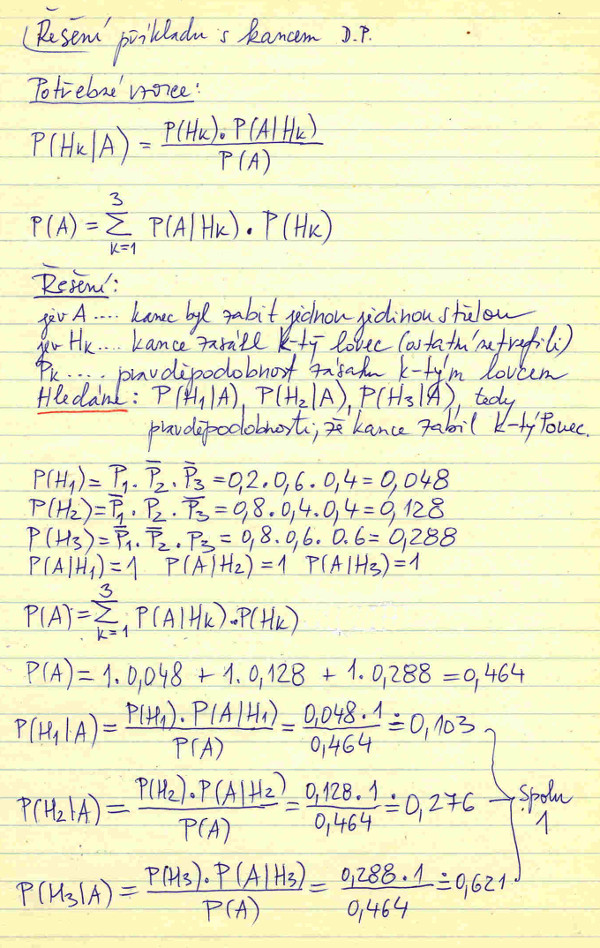 Řešení příkladu s kancem D.P.
Potřebné vzorce:
P(Hk|A) = P(Hk).P(A|Hk) / P(A)
P(A) = 3∑k=1 P(A|Hk) . P(Hk)
Řešení:
jev A .... kanec byl zabit jednou jedinou střelou
jev Hk .... kance zasáhl k-tý lovec (ostatní netrefili)
Pk .... pravděpodobnost zásahu k-tým lovcem
Hledáme: P(H1|A), P(H2|A), P(H3|A), tedy
pravděpodobnosti, že kance zabil k-tý lovec.
P(H1) = P1 . P̄2 . P̄3 = 0,2 . 0,6 . 0,4 = 0,048
P(H2) = P̄1 . P2 . P̄3 = 0,8 . 0,4 . 0,4 = 0,128
P(H3) = P̄1 . P̄2 . P3 = 0,8 . 0,6 . 0.6 = 0,288
P(A|H1) = 1 P(A|H2) = 1 P(A|H3) = 1
P(A) = 3∑k=1 P(A|Hk) . P(Hk)
P(A) = 1 . 0,048 + 1 . 0,128 + 1 . 0,288 = 0,464
P(H1|A) = P(H1) . P(A|H1) / P(A) = 0,048 . 1 / 0,464 ≐ 0,103
P(H2|A) = P(H2) . P(A|H2) / P(A) = 0,128 . 1 / 0,464 ≐ 0,276
Spolu
1
P(H3|A) = P(H3) . P(A|H3) / P(A) = 0,288 . 1 / 0,464 ≐ 0,621